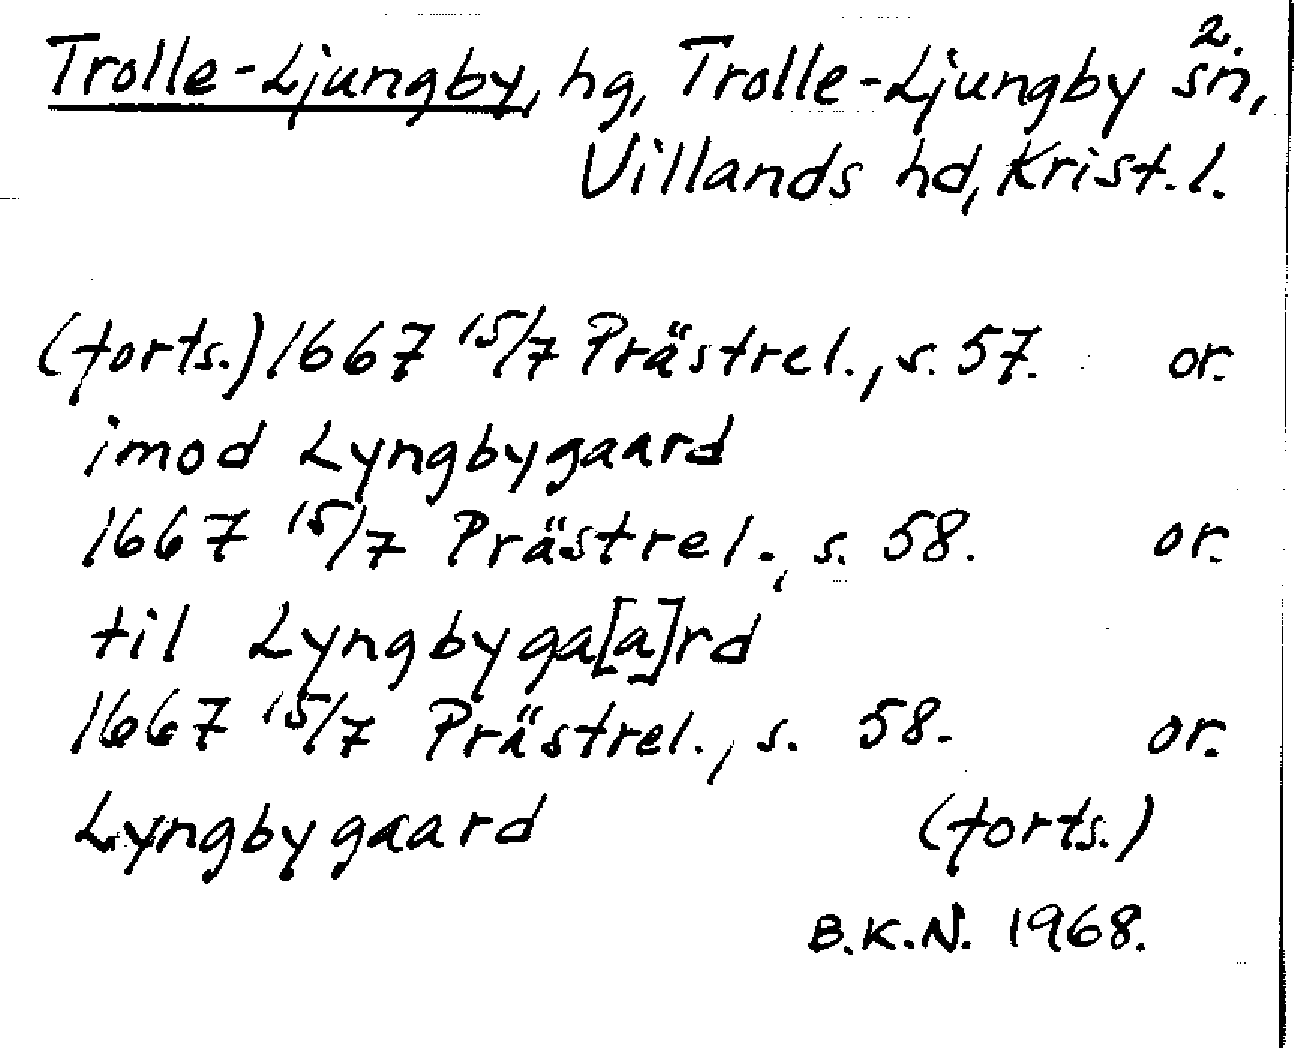 2.
Trolle-Ljungby, hg, Trolle-Ljungby sn,
Villands hd, Krist. l.
(forts.) 1667 15/7 Prästrel., s. 57. or.
imod Lyngbygaard
1667 15/7 Prästrel., s. 58. or.
til Lyngbyga[a]rd
1667 15/7 Prästrel., s. 58. or.
Lyngbygaard (forts.)
B.K.N. 1968.